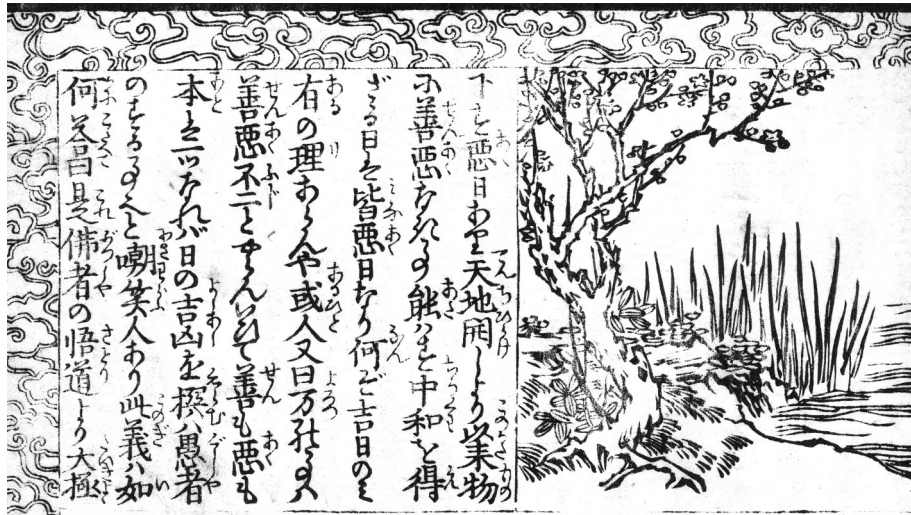 下も悪日あり天地開しより以来物
に善悪なきるの能はず中和を得
ざる日は皆悪日なり何ぞ吉日のミ
有の理あらんや或人又曰万れるハ
善悪不二と申もんハ善も悪も
本は一ツなれバ日の吉凶を撰ハ愚者
のするるへと嘲笑人あり此義ハ如
何答曰是佛者の悟道より大極